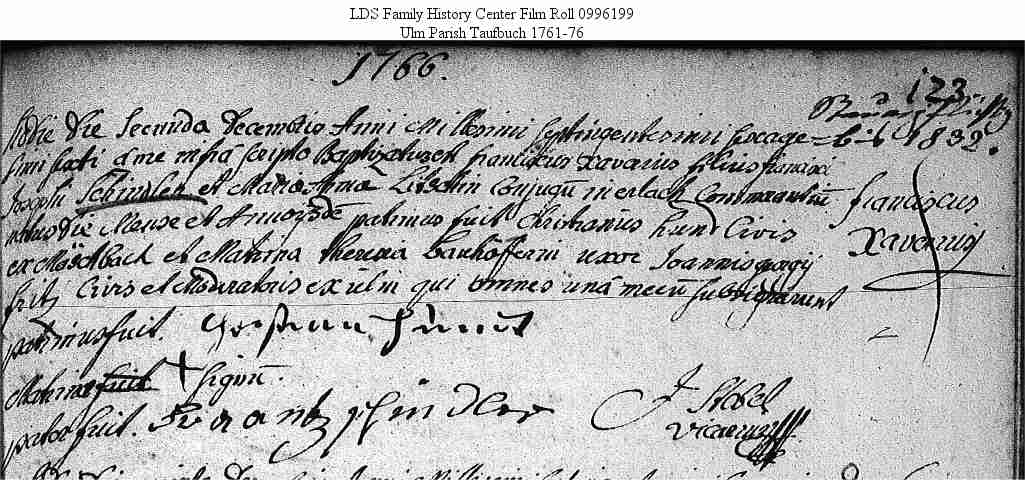 LDS Family History Center Film Roll 0996199
Ulm Parish Taufbuch 1761-76
1766.
123
1832.
Hodie Die Secunda Decembris Anni Millesimi Septingentesimi Sexage=
simi Sexti a me infra Scripto Baptizatus est franciscus Xaverius filius francisci
Josephi Schindler et Maria Anna Conjugum in erlach Commorantium
natus die Mense et Anno patrinus fuit Christianus hund Civis
ex Möschbach et Matrina theresia uxor Joannis georgii
fritz Civis et Moderatoris ex ulm qui omnes una mecum subsignarunt
franciscus
Xaverius
patrinus fuit.
Matrina fuit + signum.
pater fuit. frantz schindler
J Stebel
vicarius